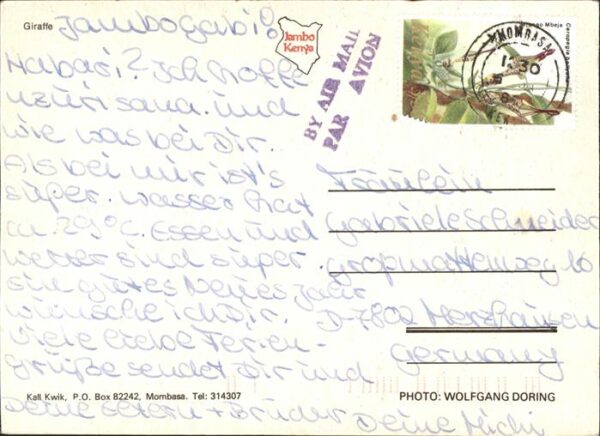 Giraffe
Jambo Gabi
Jambo
Kenya
BY AIR MAIL
PAR AVION
MOMBASA
Habari? Ich hoffe
nzuri sana. und
wie was bei Dir.
Als bei mir ist's
super. Wasser hat
ca. 29°C. Essen und
wetter sind super.
ein gutes Neues Jahr
wünsche ich Dir.
Viele liebe Ferien-
grüße sendet Dir und
Deine Eltern + Brüder Deine Michi
Fräulein
Gabriele Schneider
16
D-7802 Merzhausen
Germany
Kall Kwik, P.O. Box 82242, Mombasa. Tel: 314307
PHOTO: WOLFGANG DORING